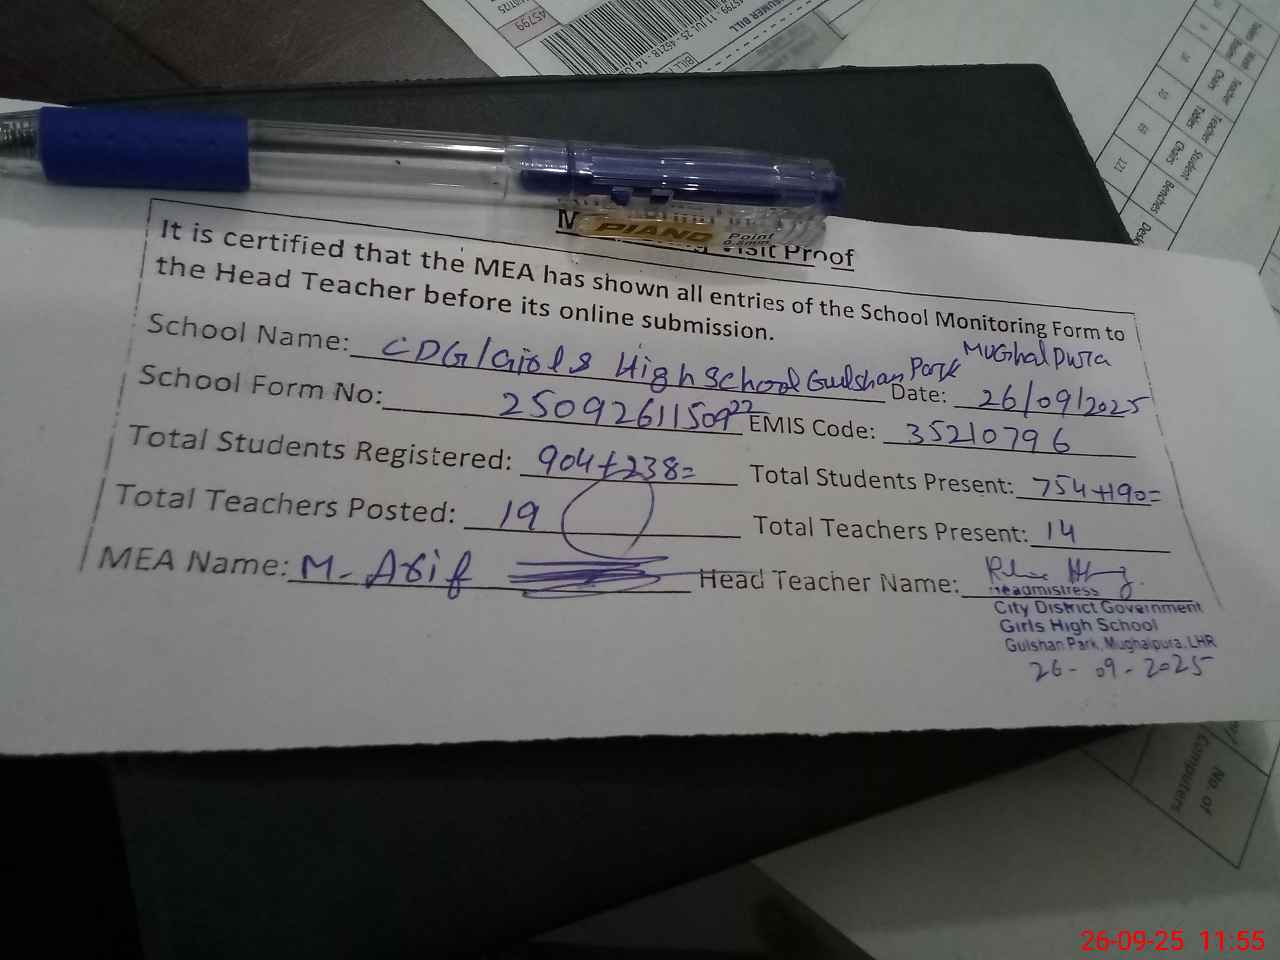 45799
45799 11 JUL 25 - 46218 - 14
BILL
No. of
Computers
Teacher Chairs
Teacher Tables
Student Chairs
Student Benches
10
121
PIANO Point
Visit Proof
It is certified that the MEA has shown all entries of the School Monitoring Form to
the Head Teacher before its online submission.
School Name: CDG/Girls High School Gulshan Park Mughalpura Date: 26/09/2025
School Form No: 2509261150922 EMIS Code: 35210796
Total Students Registered: 904+238= Total Students Present: 754+190=
Total Teachers Posted: 19 Total Teachers Present: 14
MEA Name: M. Asif Head Teacher Name:
Headmistress
City District Government
Girls High School
Gulshan Park, Mughalpura, LHR
26-09-2025
26-09-25 11:55